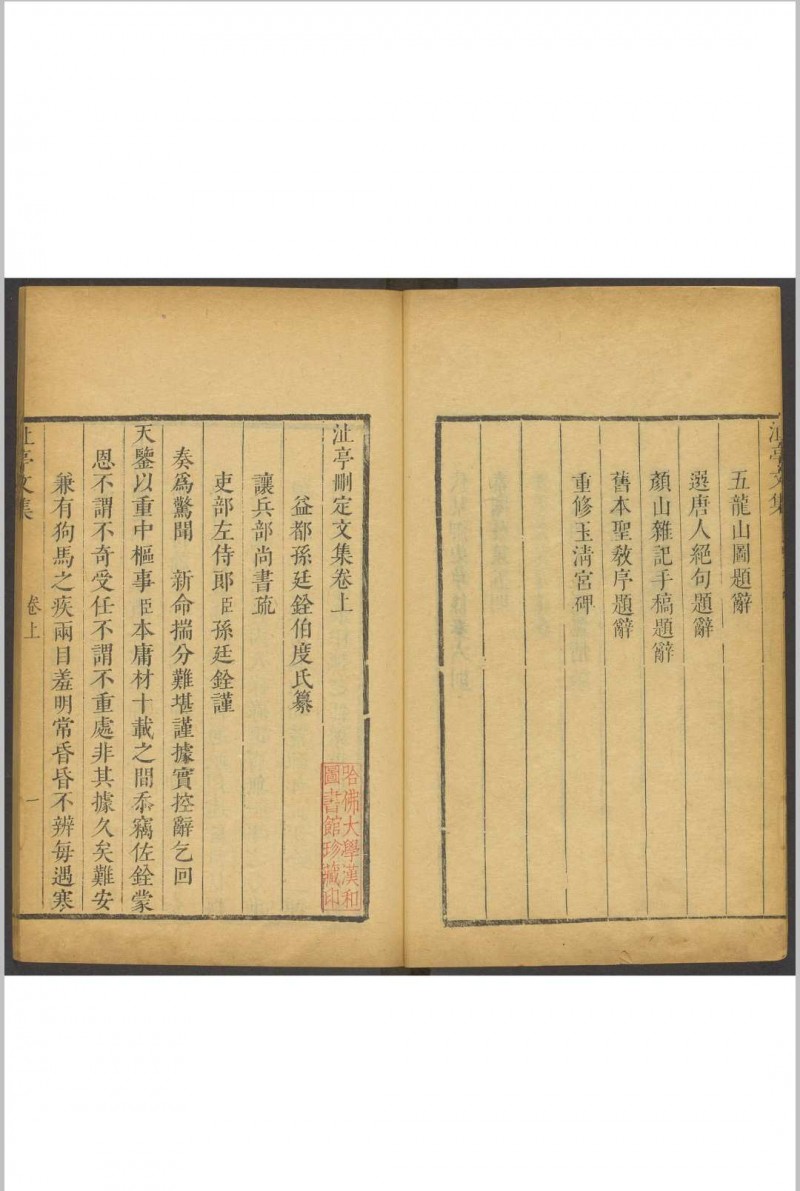 五龍山圖題辭
選唐人絕句題辭
顏山雜記手稿題辭
舊本聖敎序題辭
重修玉淸宮碑
沚亭刪定文集卷上
益都孫廷銓伯度氏纂
讓兵部尚書疏
吏部左侍郎臣孫廷銓謹
奏爲驚聞　新命揣分難堪謹據實控辭乞回
天鑒以重中樞事臣本庸材十載之間忝竊佐銓蒙
恩不謂不奇受任不謂不重處非其據久矣難安
兼有狗馬之疾兩目羞明常昏昏不辨每遇寒
沚亭文集
卷上
一
哈佛大學漢和
圖書館珍藏印